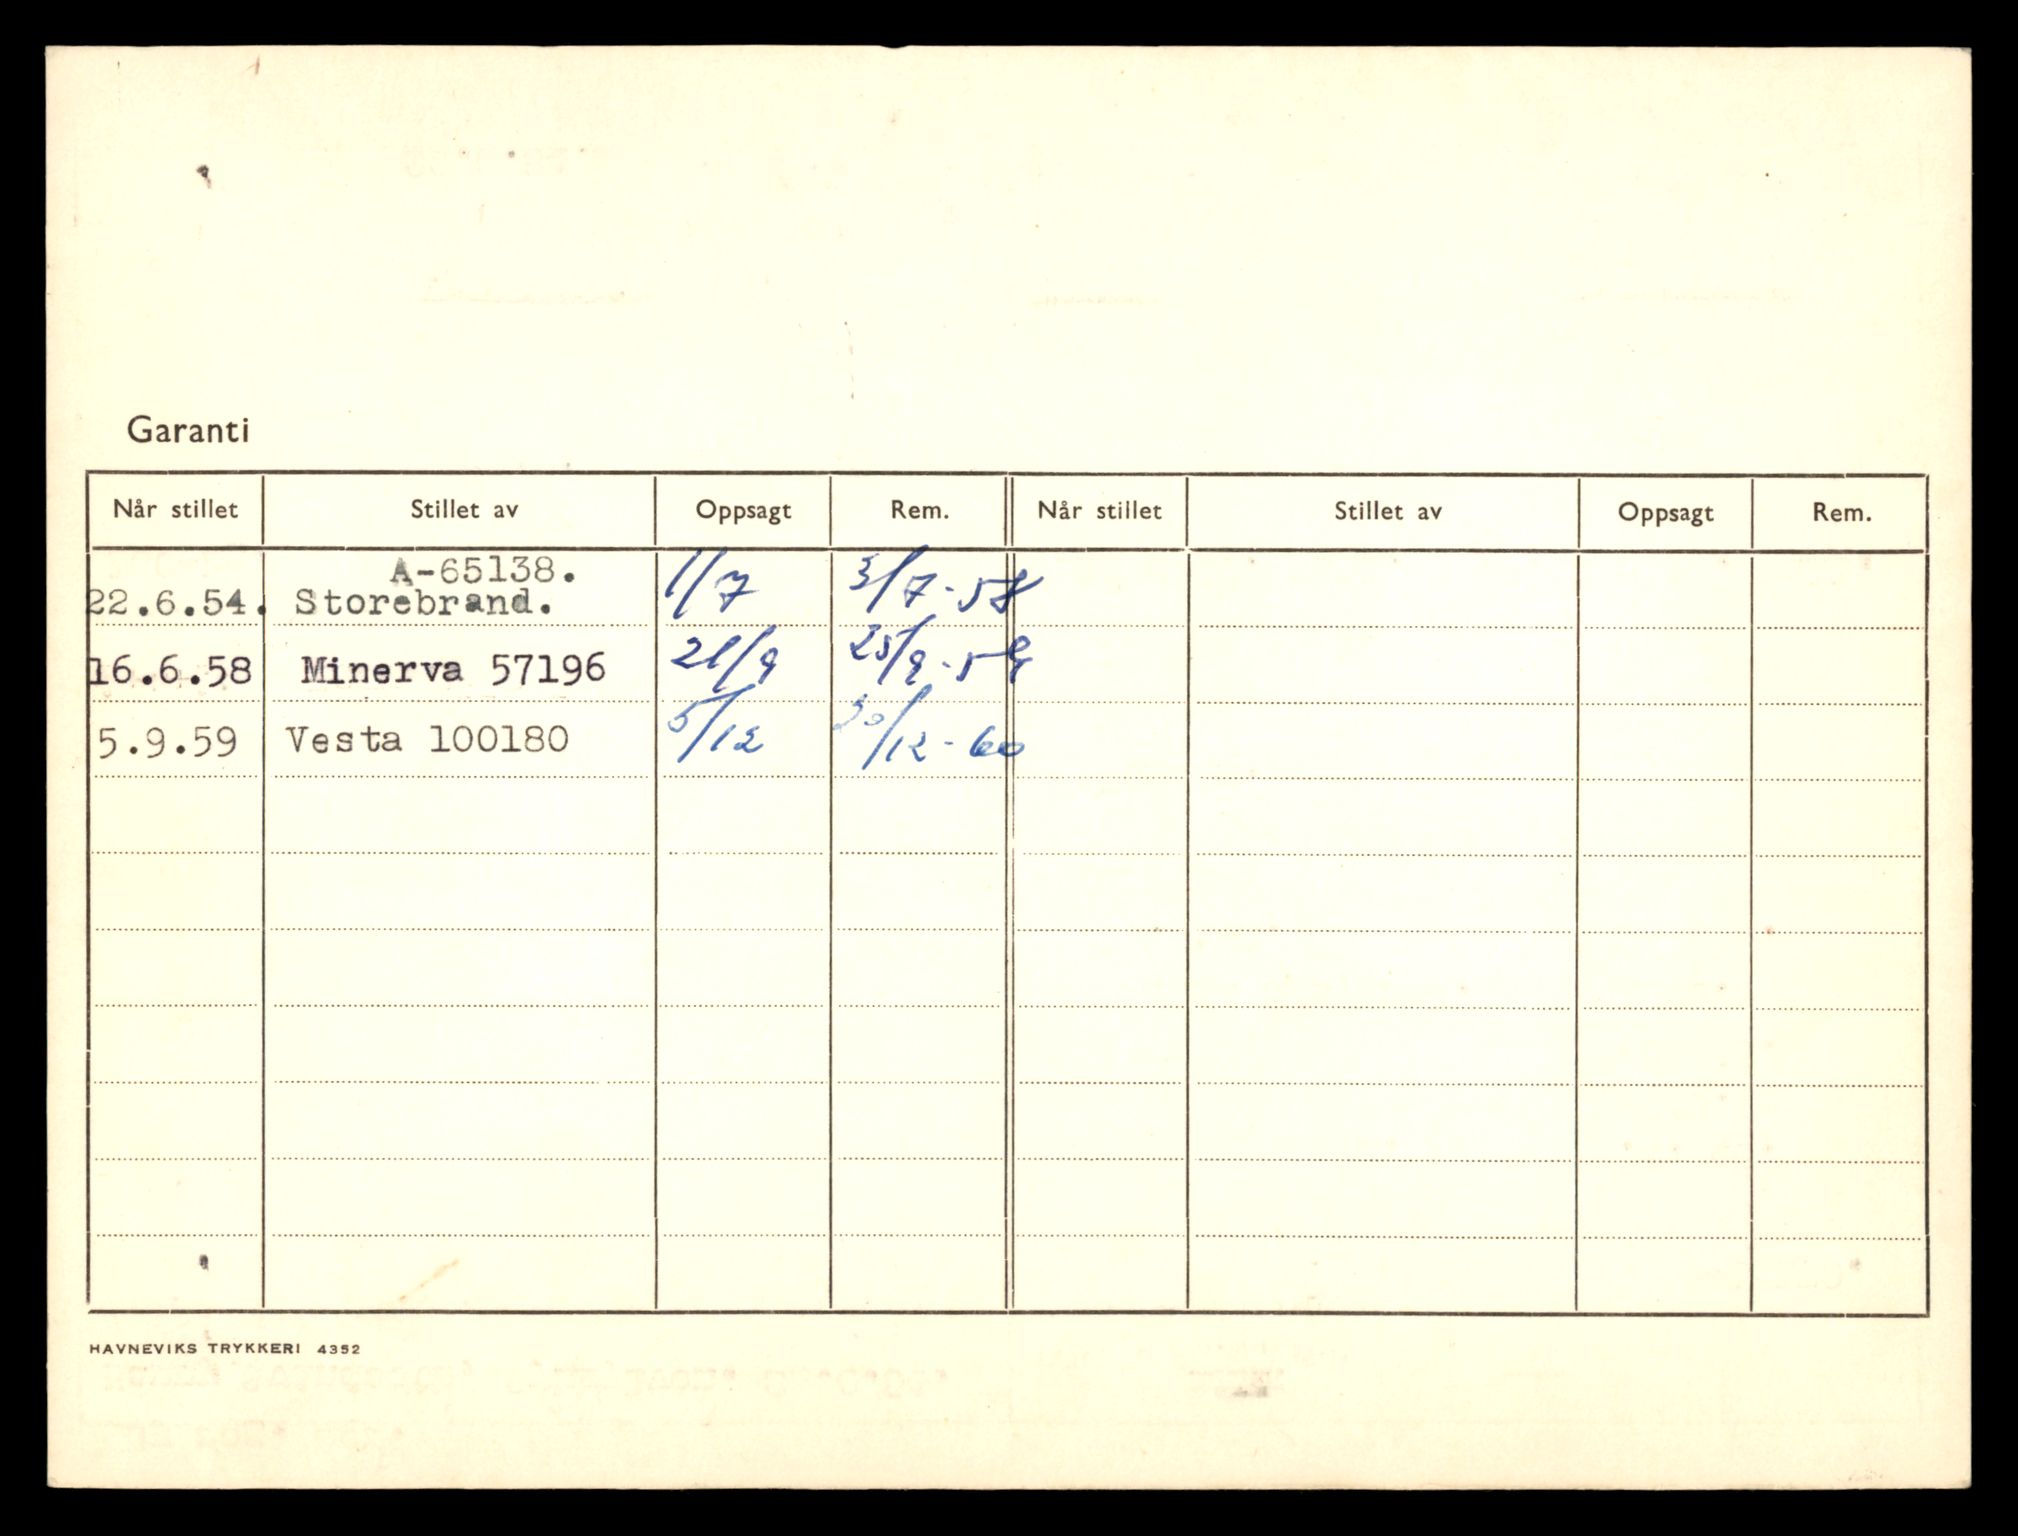 Garanti
Når stillet Stillet av Oppsagt Rem. Når stillet Stillet av Oppsagt Rem.
A-65138.
22.6.54. Storebrand. 1/7 3/7-58
16.6.58 Minerva 57196 21/9 25/9-59
5.9.59 Vesta 100180 5/12 30/12-60
HAVNEVIKS TRYKKERI 4352